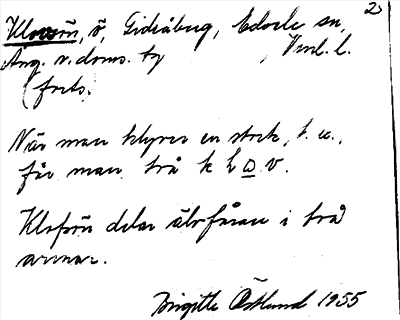 2
Klovön, ö, Gidsåberg, Edsele sn,
Ang. v. doms. ty Vml. l.
(forts.
När man klyver en stock, t. ex.,
får man två k l o v.
Klofön delar älvfåran i två
armar.
Birgitta Östlund 1955